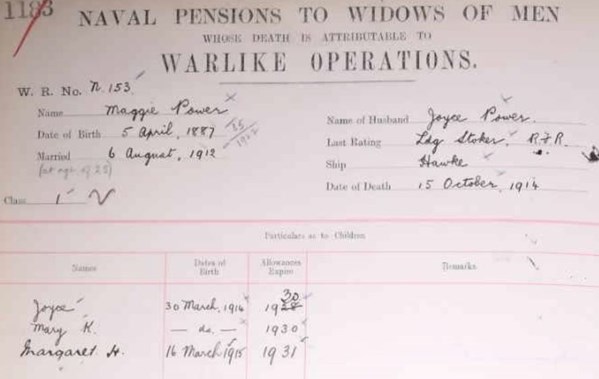 1183
NAVAL PENSIONS TO WIDOWS OF MEN
WHOSE DEATH IS ATTRIBUTABLE TO
WARLIKE OPERATIONS.
W. R. No. N.153
Name Maggie Power
Date of Birth 5 April, 1887
Married 6 August, 1912
(at age of 25)
Class 1
Name of Husband Joyce Power.
Last Rating Ldg Stoker, R.F.R.
Ship Hawke
Date of Death 15 October, 1914
Particulars as to Children
Names Dates of Birth Allowances Expire Remarks
Joyce 30 March, 1914 1930
Mary K. — do. — 1930
Margaret H. 16 March 1915 1931